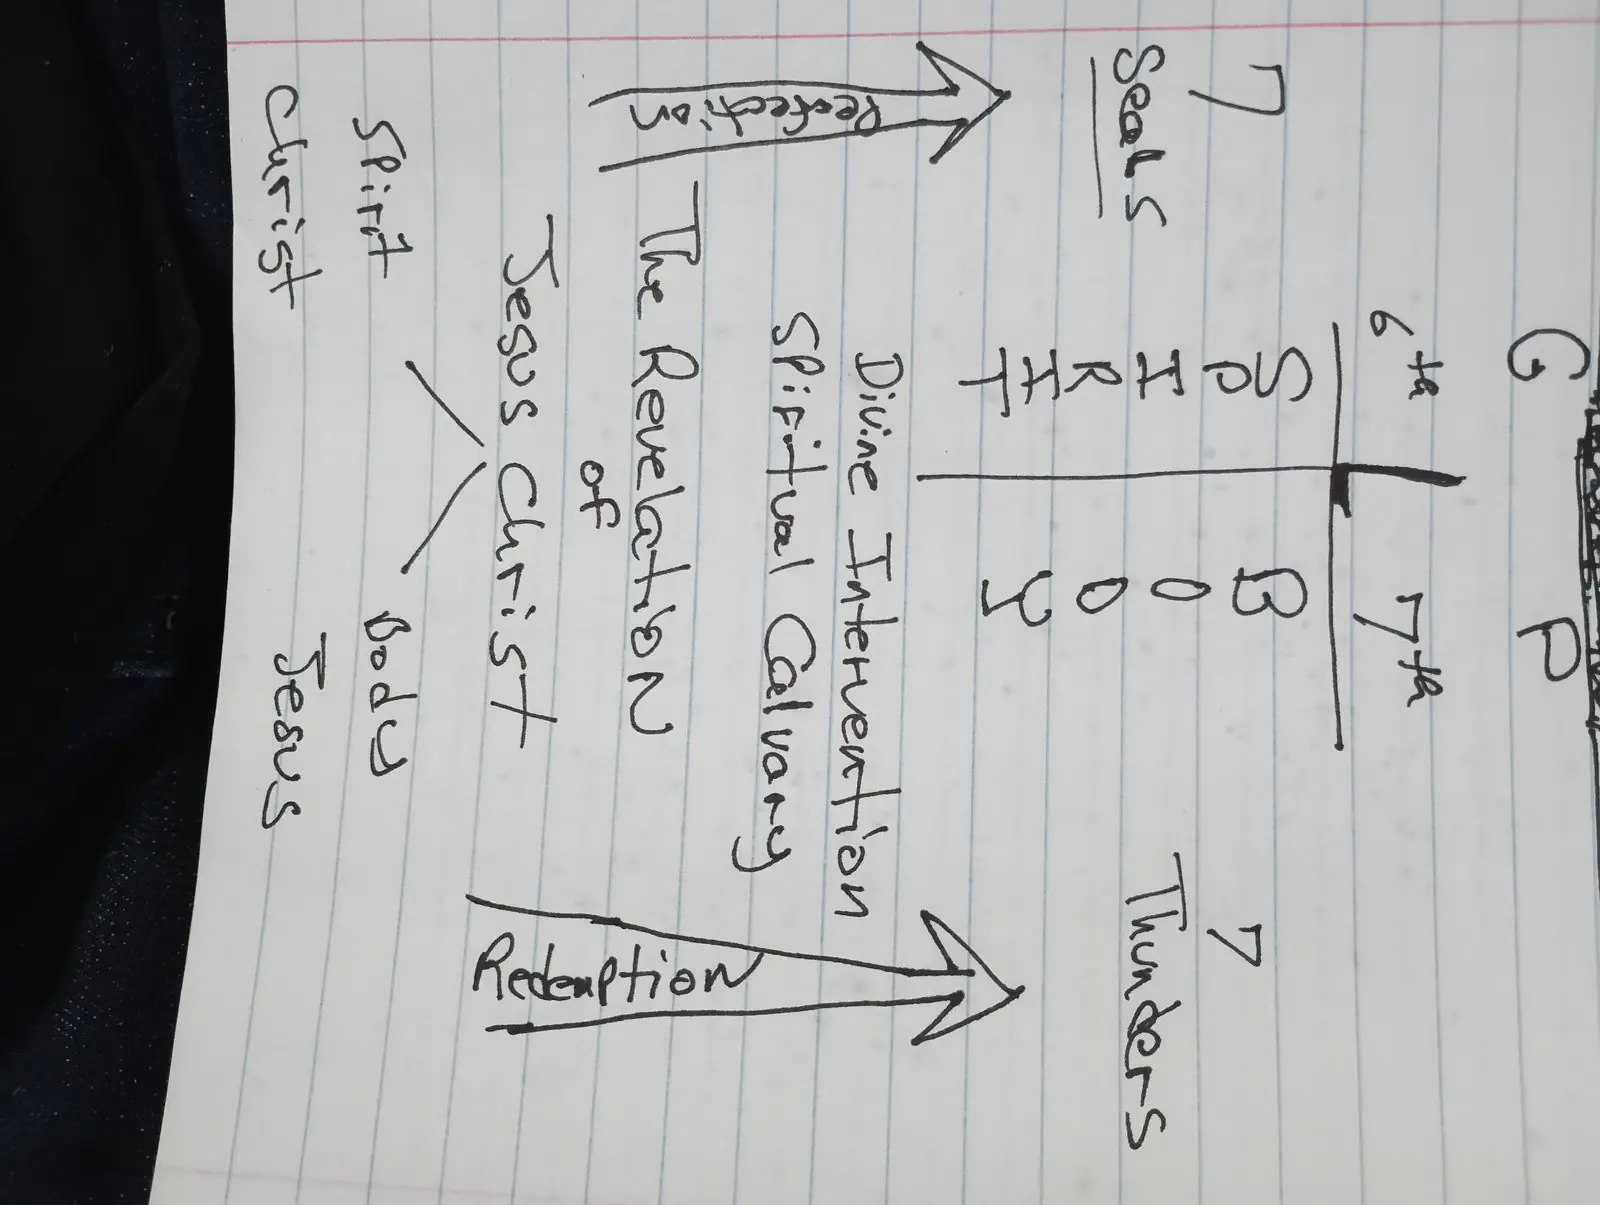 G P
6th 7th
7 SPIRIT BODY 7
Seals Thunders
Divine Intervention
Spiritual Calvary
Perfection Redemption
The Revelation
of
Jesus Christ
Spirit Body
Christ Jesus